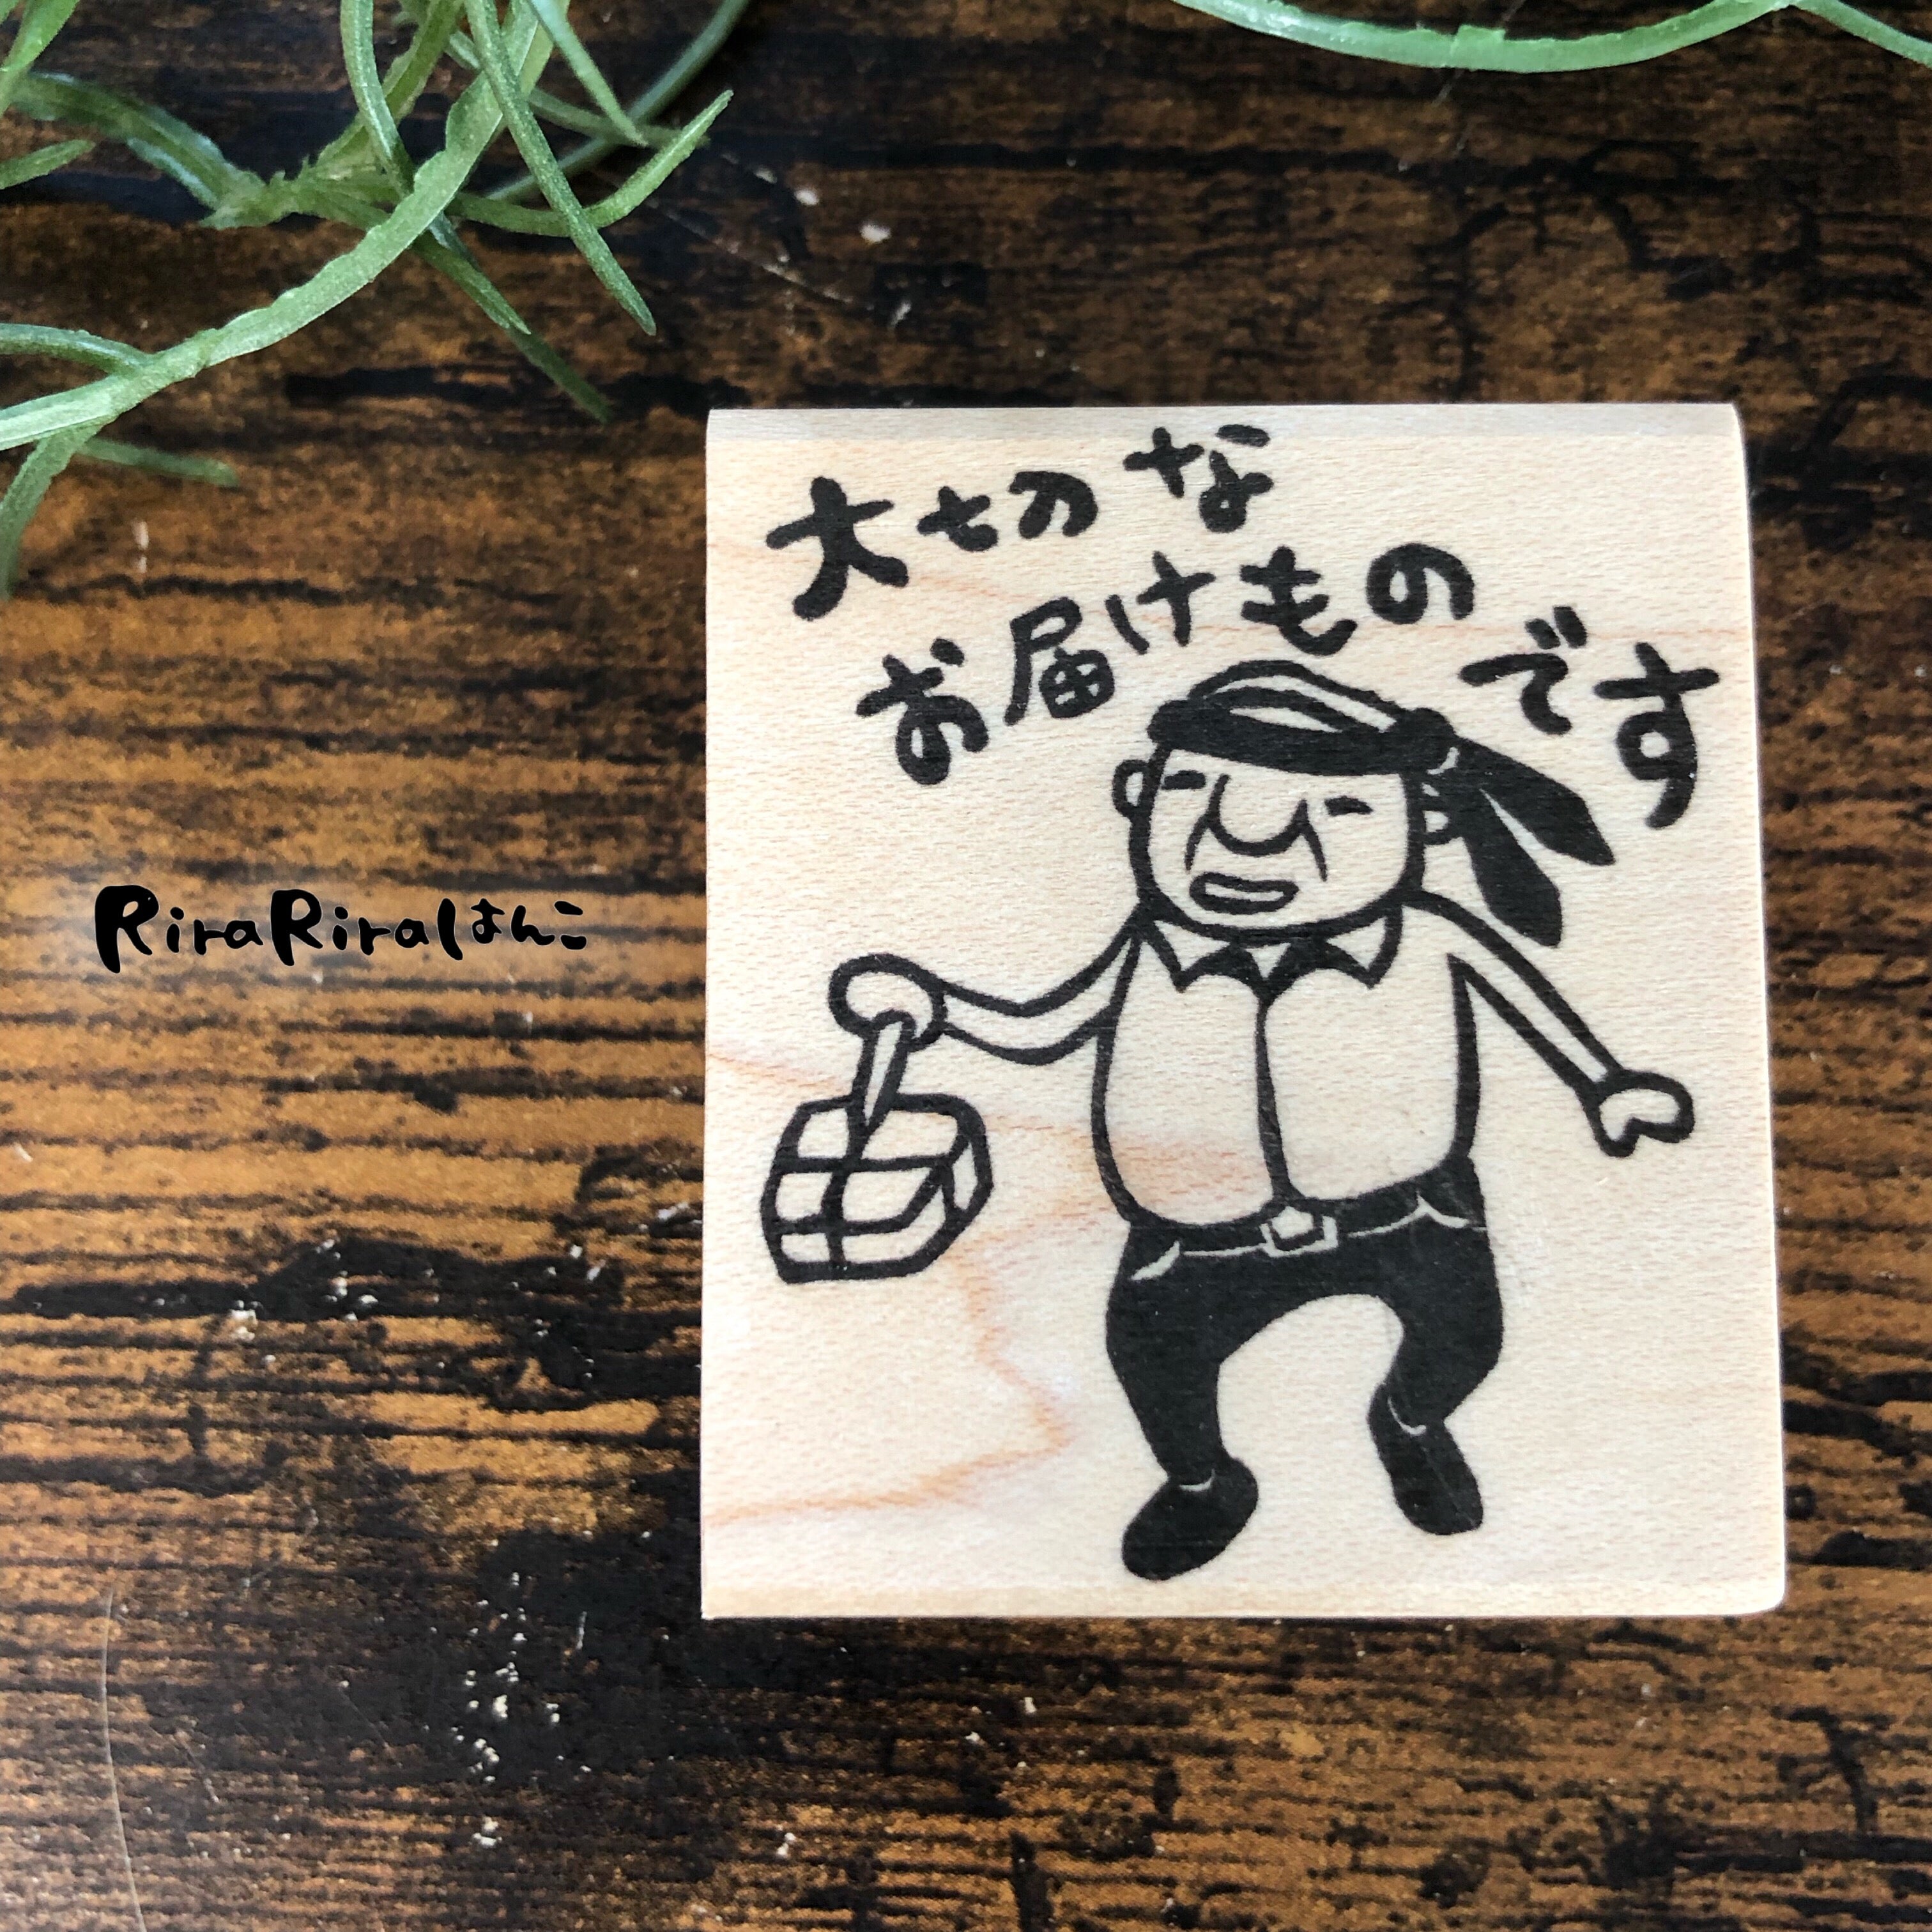 大切な
お届けものです
RiraRiraはんこ